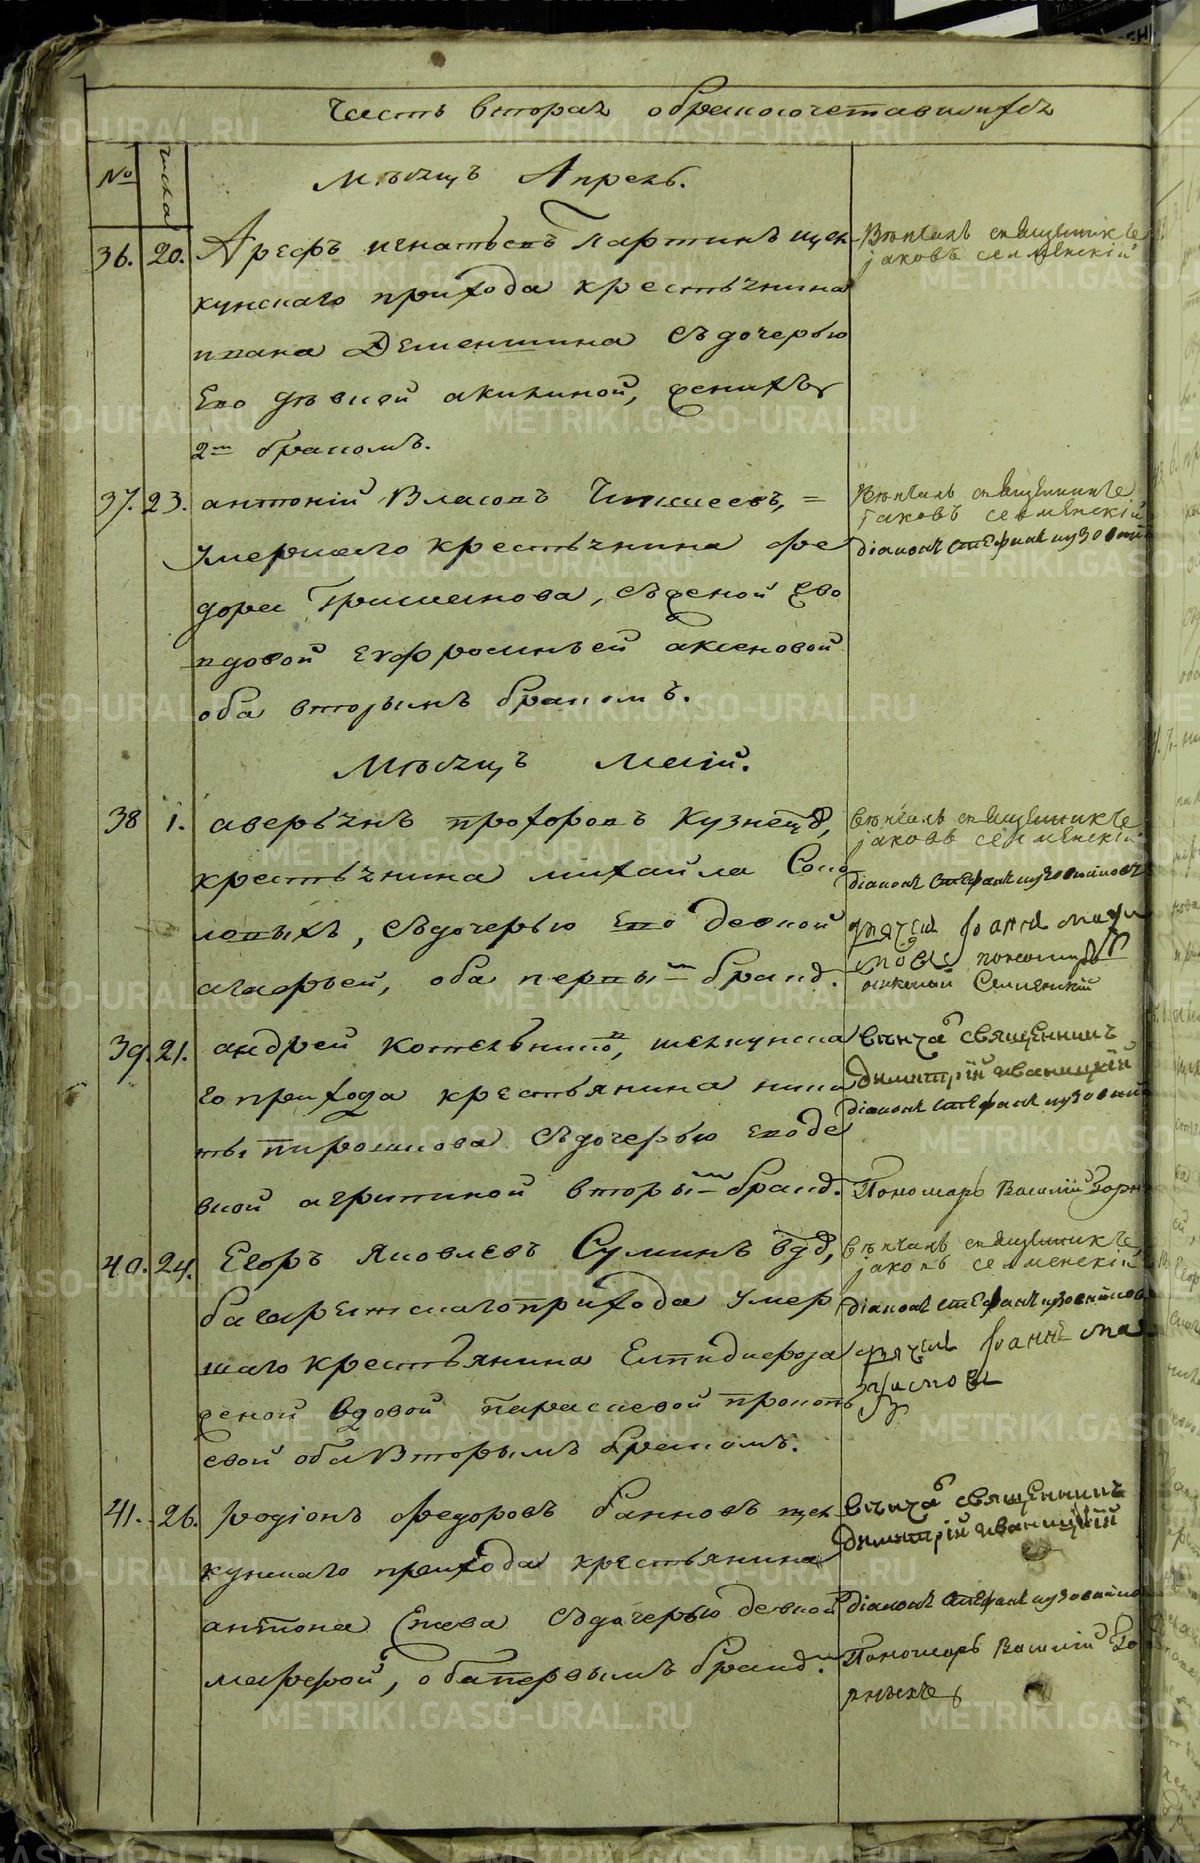 Часть вторая обракосочетавшихся
№ числа
Месяцъ Апрель.
36. 20. Арефъ игнатьевъ Партинъ щел
кунскаго прихода крестьянина
ивана Деменшина съдочерью
Его девкой акилиной, женихъ
2м бракомъ.
Венчалъ священникъ
іаковъ селменскій
37. 23. антоній Власовъ =
умершаго крестьянина фе
дора съженой Его
вдовой Ефросиньей аксеновой
оба вторымъ бракомъ.
Венчалъ священникъ
іаковъ селменскій
діаконъ стефанъ пузовъ
Месяцъ маій.
38 1. аверьянъ прохоровъ Кузнец,
крестьянина михайла Соко
ловыхъ, съдочерью Его девкой
агафьей, оба первым брак.
венчалъ священникъ
іаковъ селменскій
діаконъ стефанъ
дьячокъ Іоаннъ
пономарь
николай Селменскій
39. 21. андрей Котельнико, шелкунска
го прихода крестьянина ники
ты Пирошкова съдочерью Его де
вкой агрипиной вторым брак.
венча священникъ
димитрій иваницкій
діаконъ стефанъ
Пономарь Василій Зорн
40. 24. Егоръ Яковлевъ Суминъ вд,
багарятскагоприхода умер
шаго крестьянина Елпидифора
женой вдовой параскевой прокопь
евой оба Вторымъ бракомъ.
венчалъ священникъ
іаковъ селменскій
діаконъ стефанъ
дьячокъ Іоаннъ
41. 26. родіонъ федоровъ Банновъ щел
кунскаго прихода крестьянина
антона Ежева съдочерью девкой
марфой, обапервымъ брак.
венча священникъ
димитрій иваницкій
діаконъ стефанъ
Пономарь Василій Зо
рныхъ
METRIKI.GASO-URAL.RU